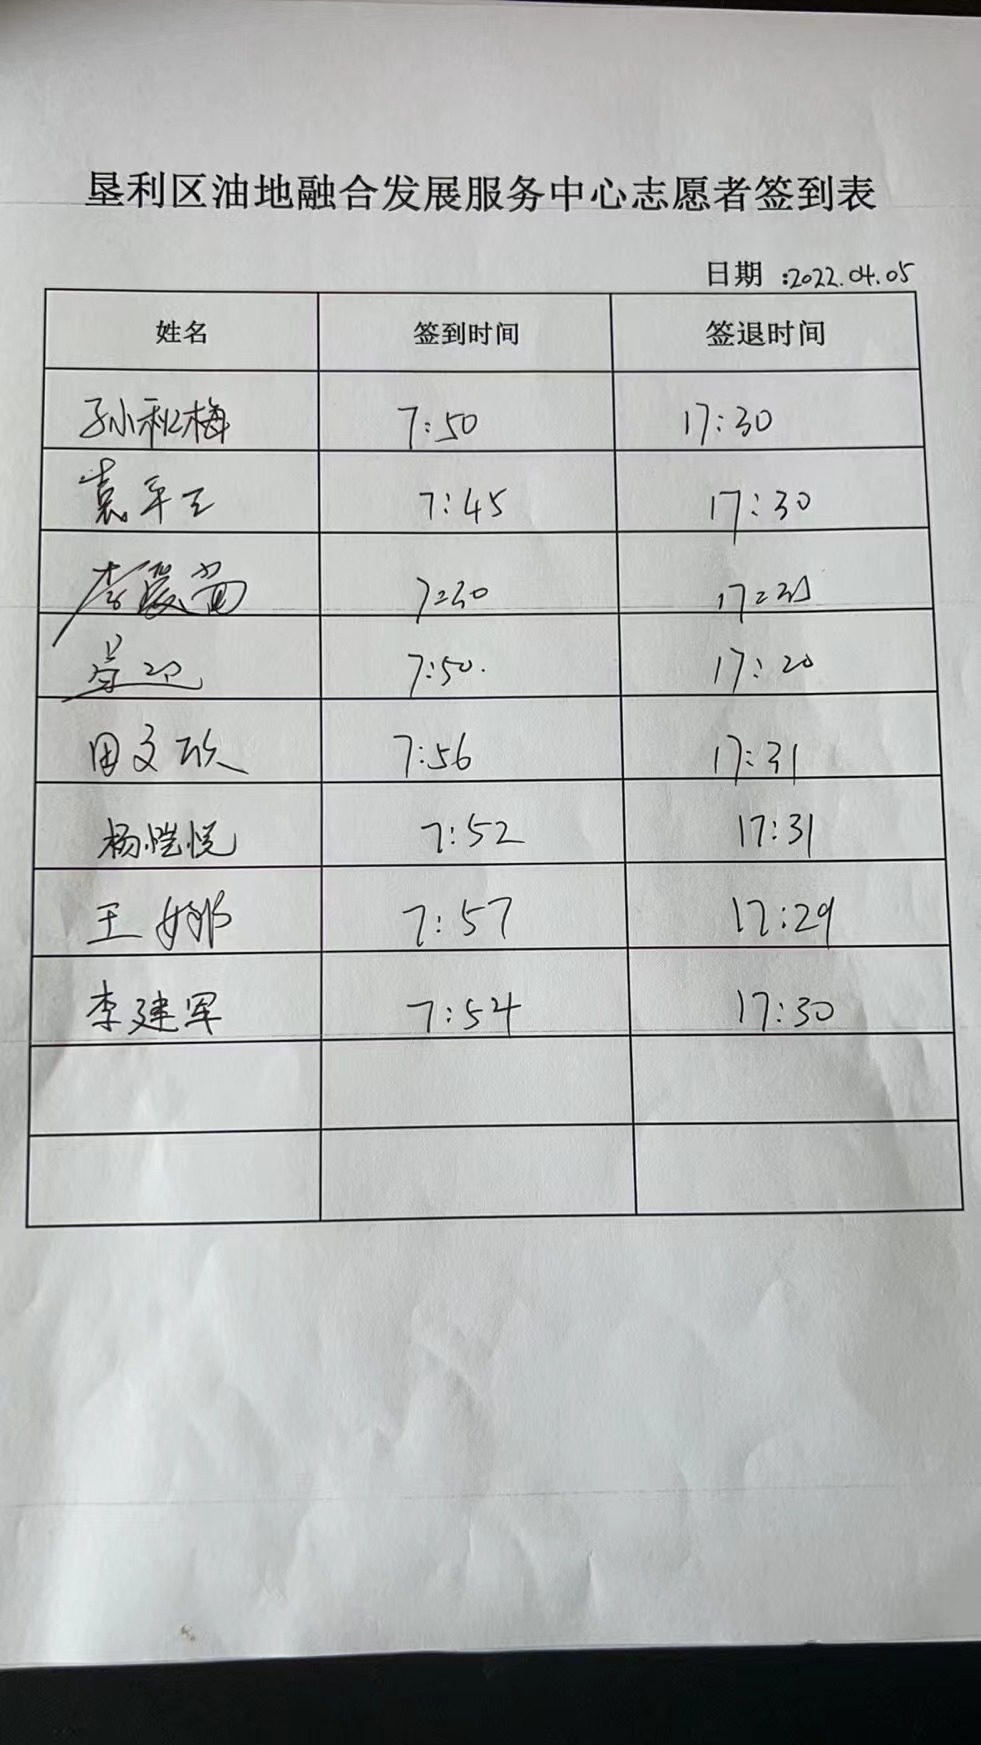 垦利区油地融合发展服务中心志愿者签到表
日期：2022.04.05
姓名 签到时间 签退时间
孙秋梅 7:50 17:30
袁平 7:45 17:30
李爱 7:30
7:50. 17:20
田文欣 7:56 17:31
杨恺悦 7:52 17:31
王娜 7:57 17:29
李建军 7:54 17:30